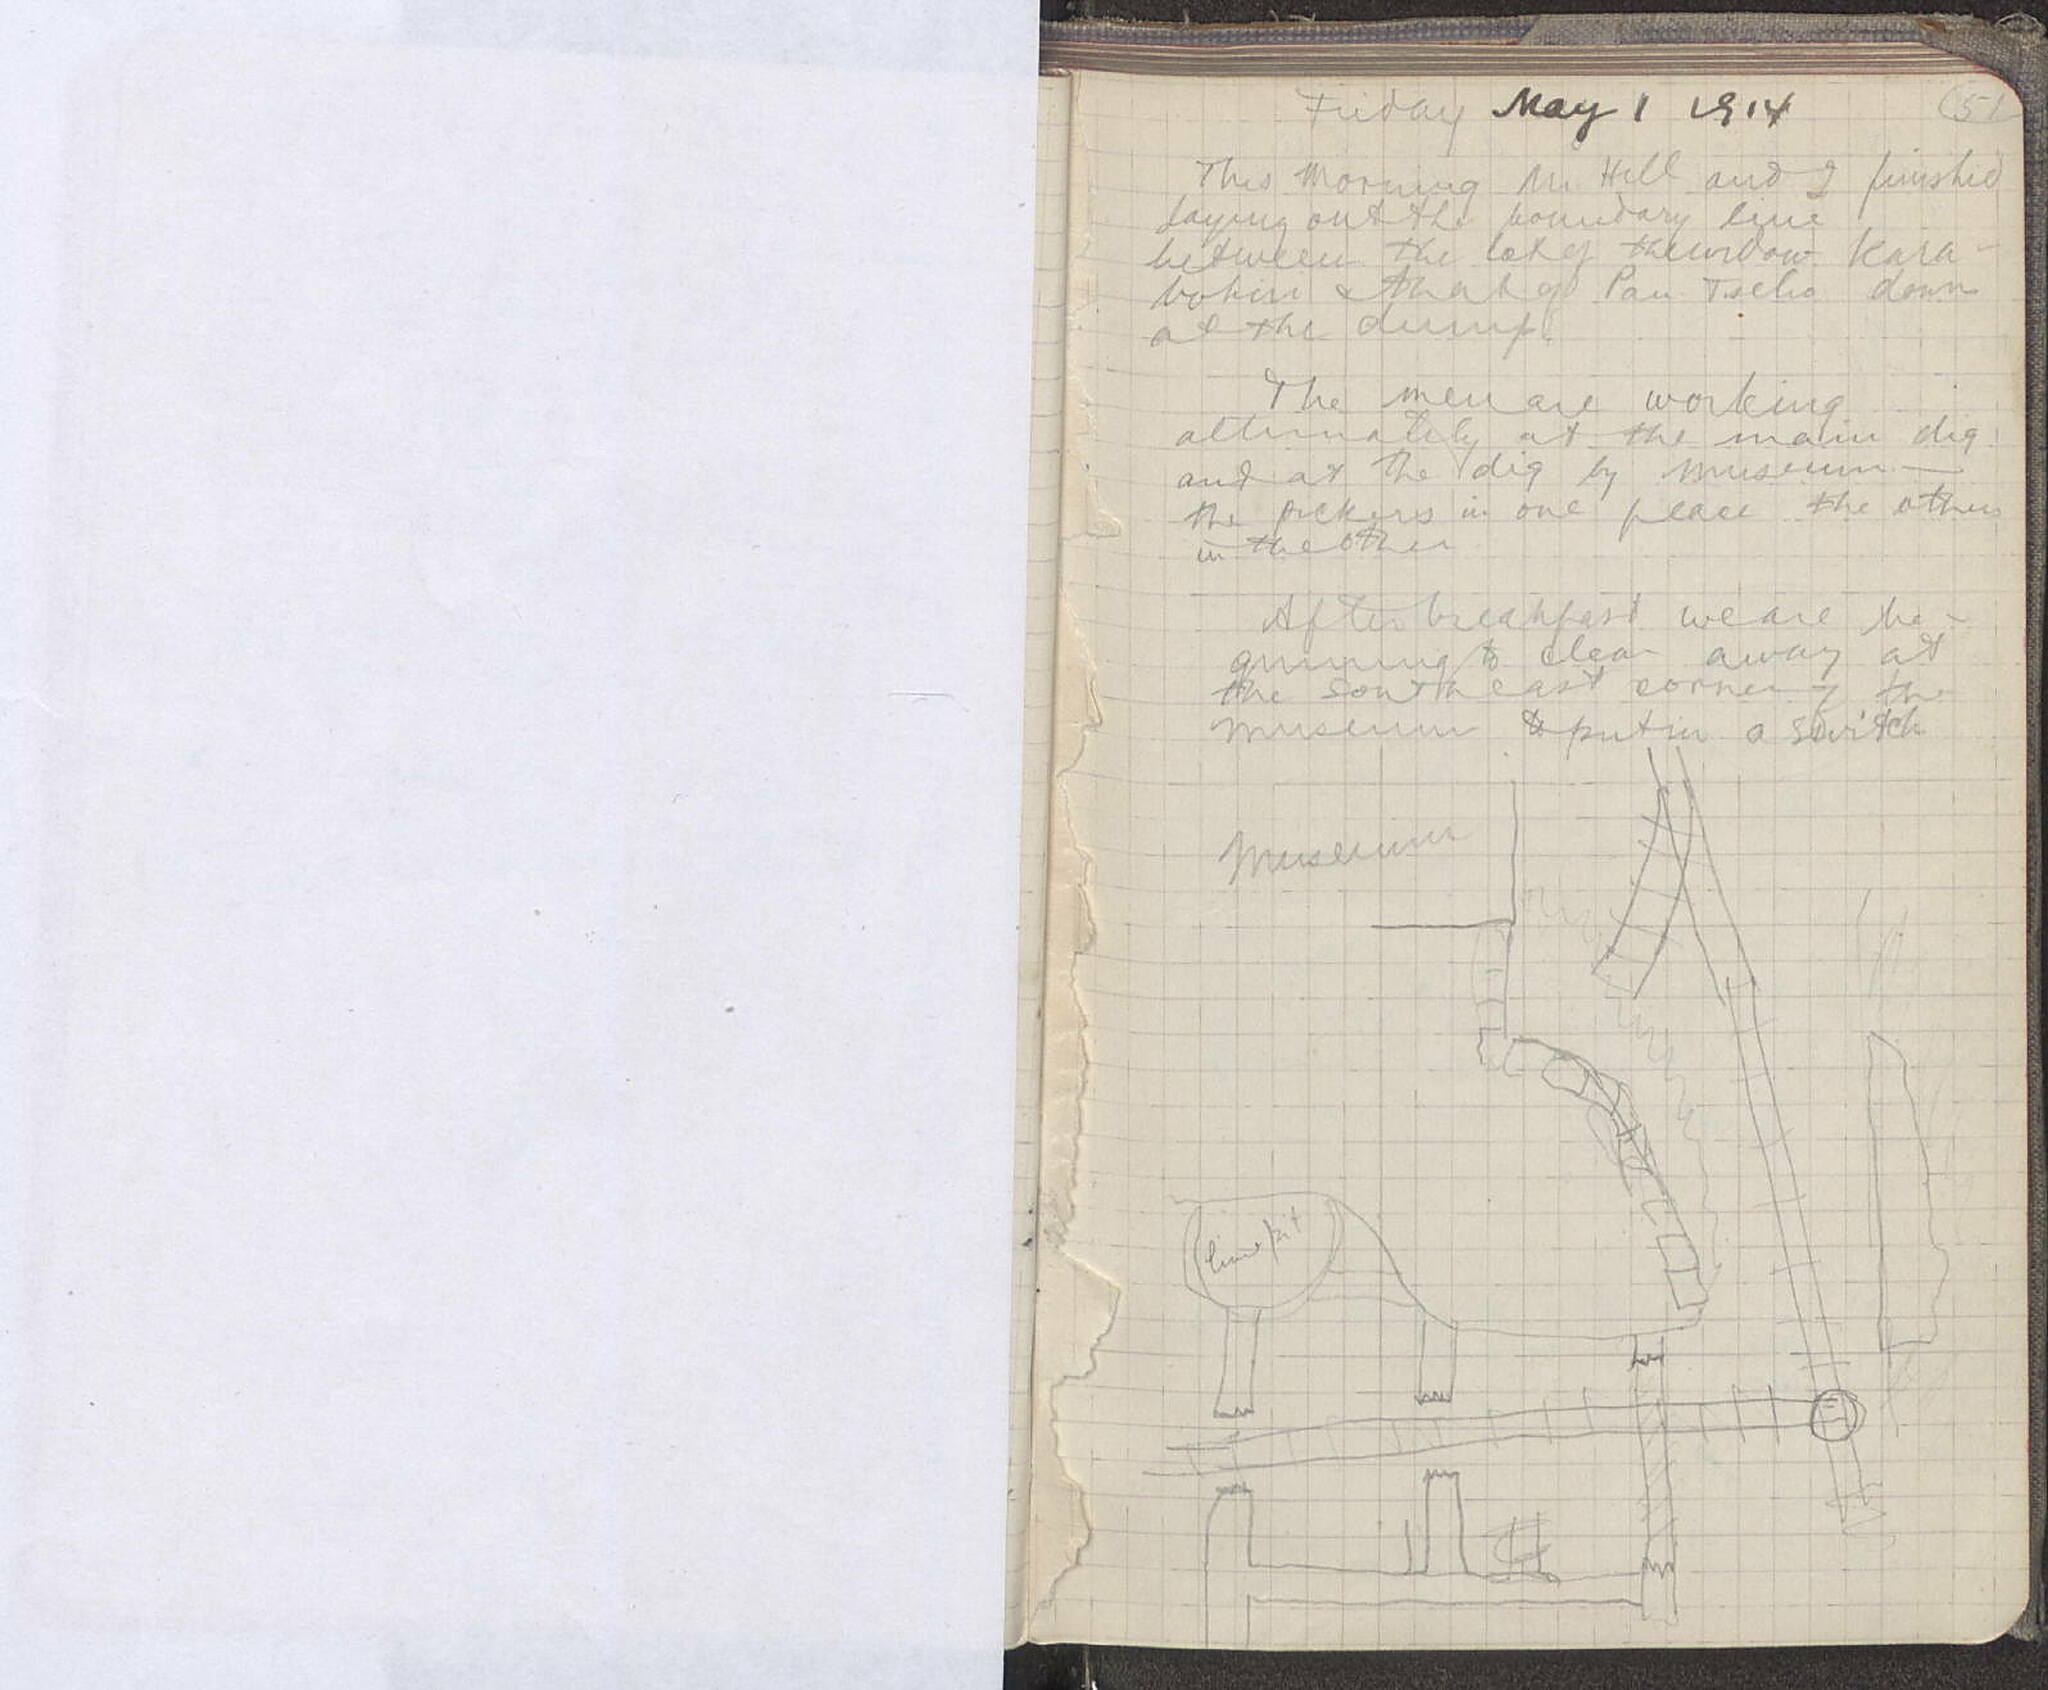 Friday May 1 1914
51
This morning Mr Hill and I finished
laying out the boundary line
between the lot of the widow Kara-
& that of Pan Tselio down
at the dump.
The men are working
alternately at the main dig
and at the dig by museum —
the pickers in one place the others
in the other
After breakfast we are be-
ginning to clear away at
the southeast corner of the
museum to put in a switch
Museum
lime pit